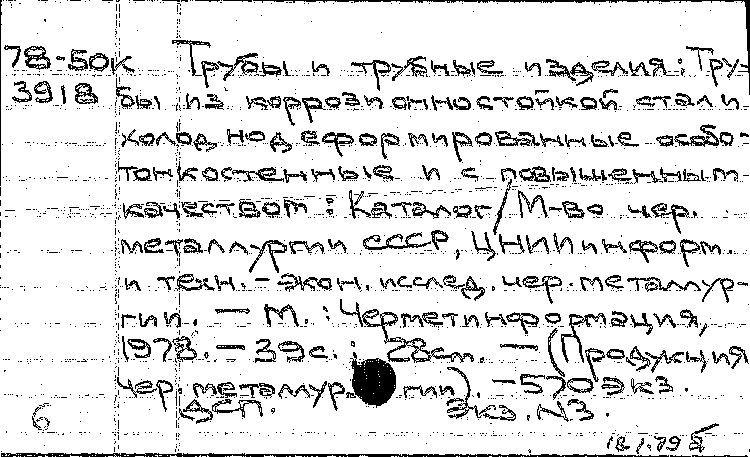 78-50к Трубы и трубные изделия: Тру-
3918 бы из коррозионностойкой стали
холоднодеформированные особо-
тонкостенные и с повышенным
качеством: Каталог/М-во чер.
металлургии СССР, ЦНИИинформ.
и техн.-экон. исслед. чер. металлур-
гии. — М.: Черметинформация,
1978. — 39с.; 28см. — (Продукция
чер. металлургии). — 570экз.
ДСП. Экз. №3.
6
18 1.79